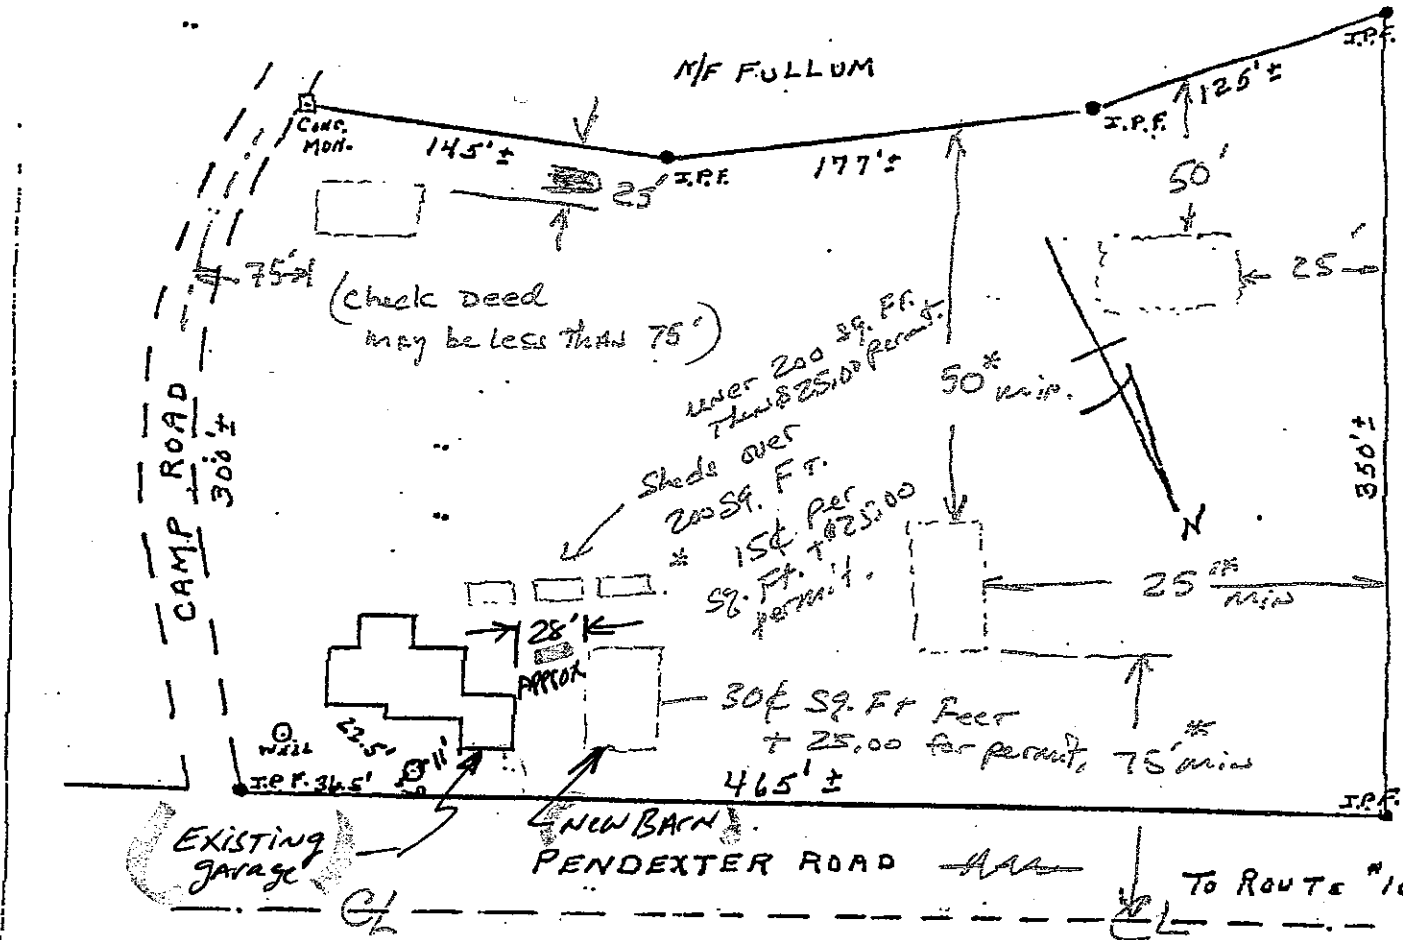 N/F FULLUM
I.P.F.
125'±
I.P.F.
CONC.
MON.
145'±
I.P.F.
177'±
25'
50'
25'
75'
(Check Deed
may be Less Than 75')
under 200 sq. Ft.
Then $25.00 permit.
50* min.
CAMP ROAD
300'±
350'±
Sheds over
200 SQ. FT.
* 15¢ per
SQ. Ft. + $25.00
permit.
N
25* min
28'
APPROX
30¢ SQ. Ft Feet
+ 25.00 for permit,
75'* min
WELL
22.5'
11'
I.P.F. 36.5'
465'±
I.P.F.
EXISTING
garage
NEW BARN
PENDEXTER ROAD
TO ROUTE #
CL
CL